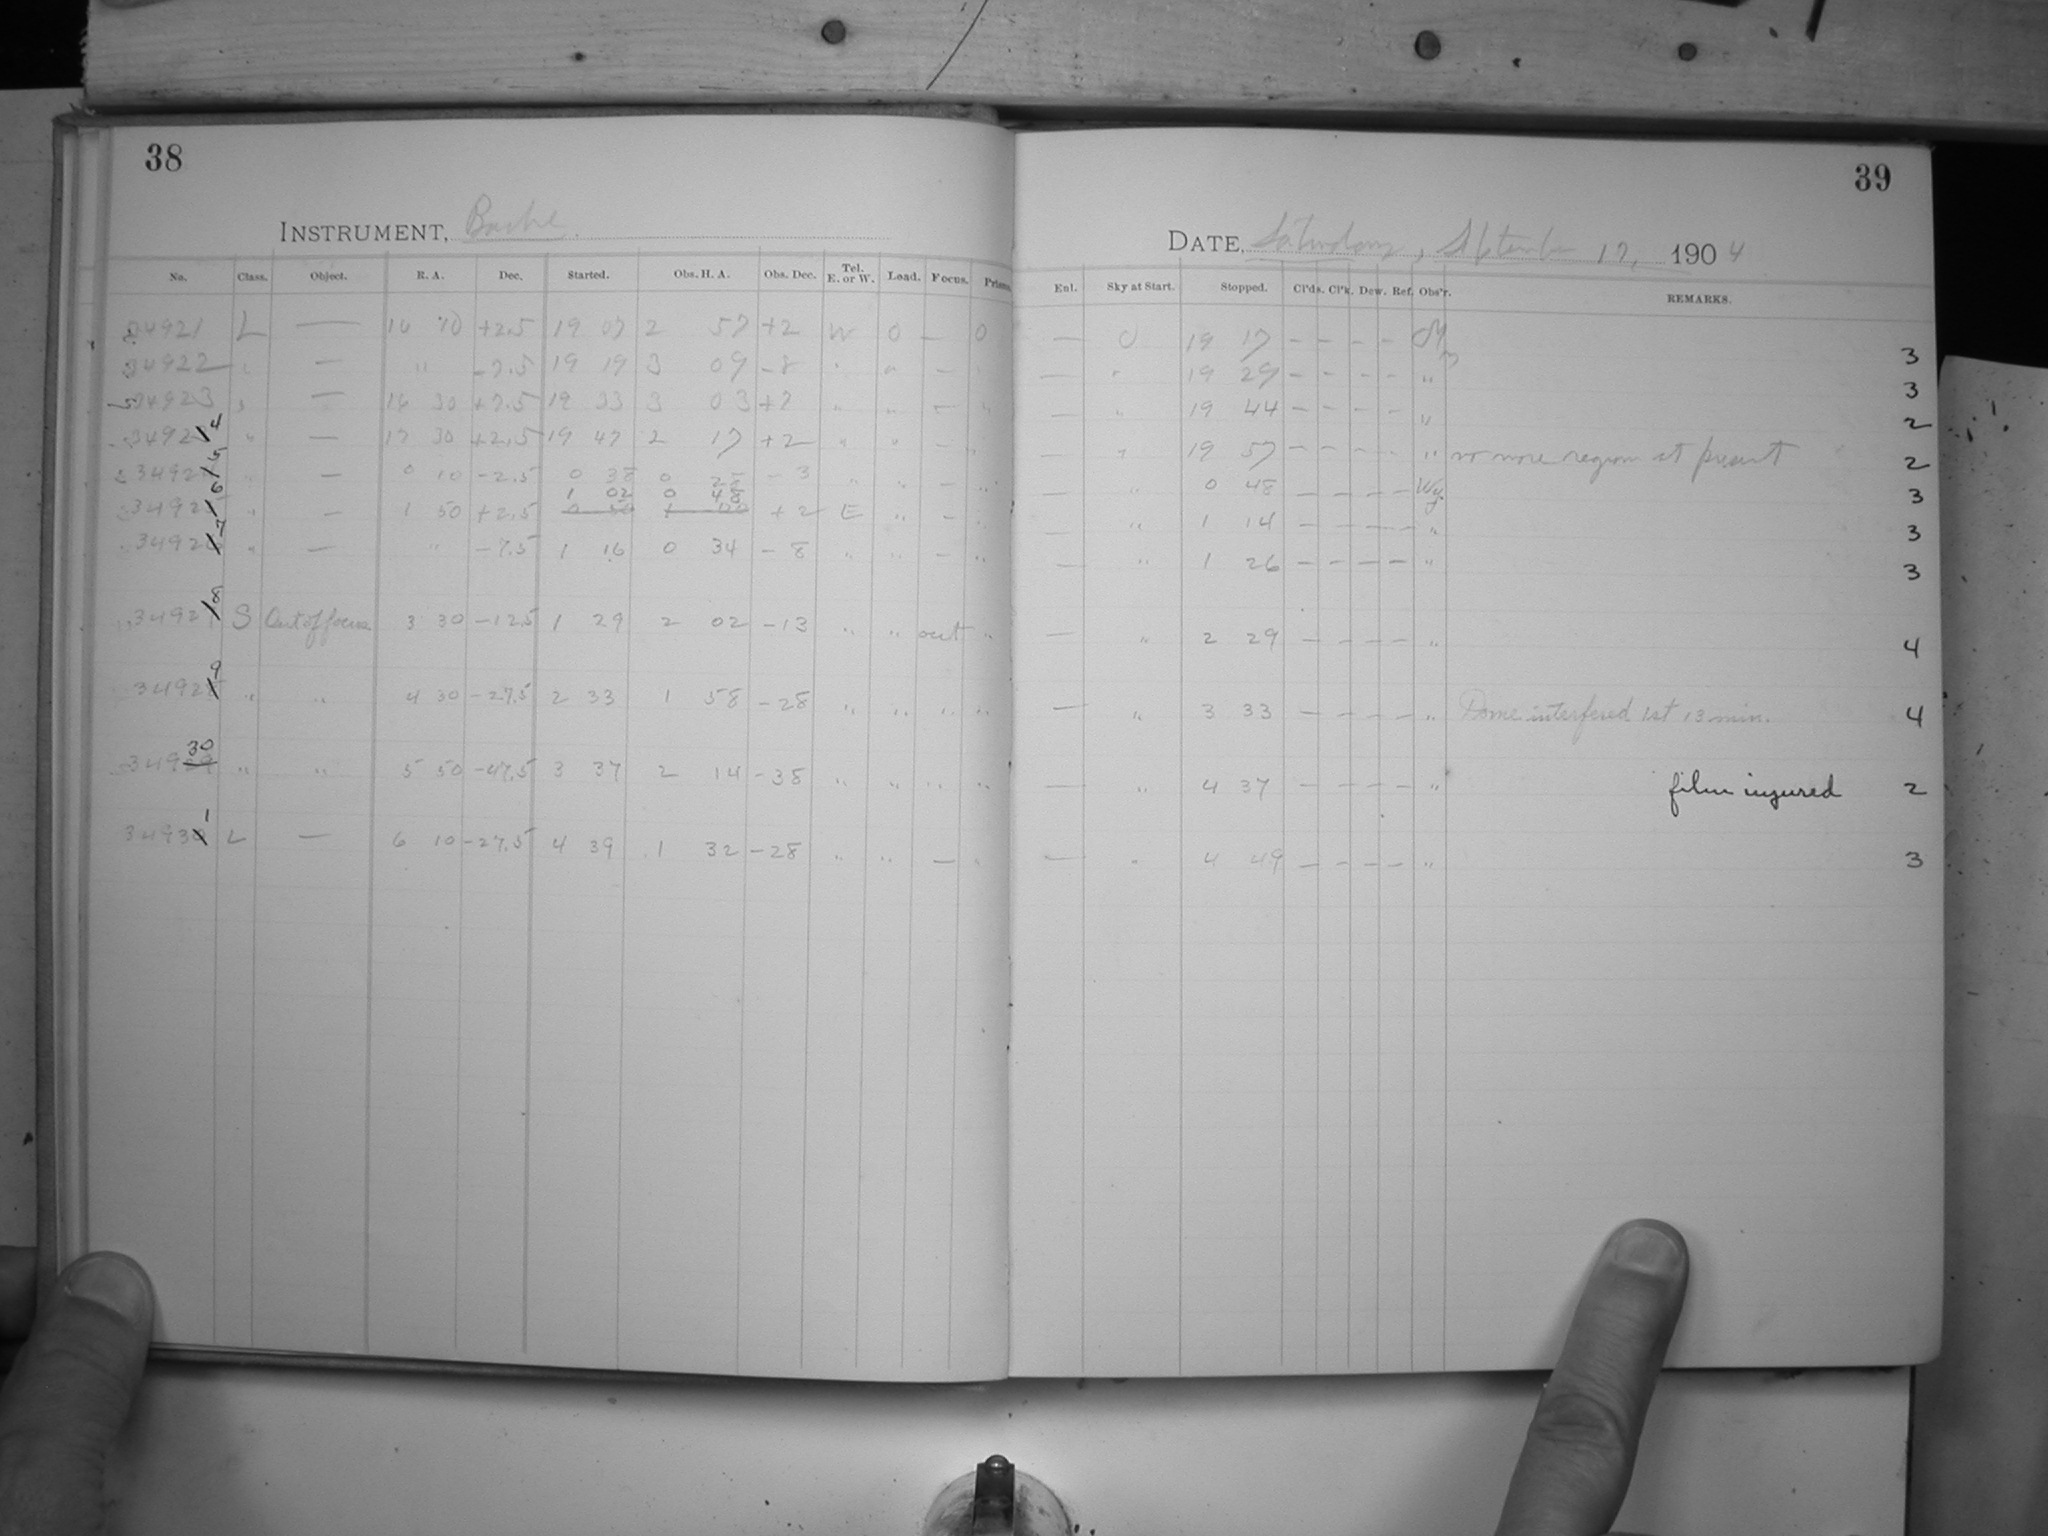 38
INSTRUMENT, Bache
No. Class. Object. R. A. Dec. Started. Obs. H. A. Obs. Dec. Tel. E. or W. Load. Focus. Prism
34921 L — 16 10 +2.5 19 07 2 57 +2 W 0 — 0
34922 " — " -7.5 19 19 3 09 -8 " " — "
34923 " — 16 30 +7.5 19 33 3 03 +7 " " — "
34924 " — 17 30 +2.5 19 47 2 17 +2 " " — "
34925 " — 0 10 -2.5 0 38 0 28 -3 " " — "
1 02 0 48
34926 " — 1 50 +2.5 +2 E " — "
34927 " — " -7.5 1 16 0 34 -8 " " — "
34928 S Out of focus 3 30 -12.5 1 29 2 02 -13 " " out "
34929 " " 4 30 -27.5 2 33 1 58 -28 " " " "
34930 " " 5 50 -47.5 3 37 2 14 -38 " " " "
34931 L — 6 10 -27.5 4 39 1 32 -28 " " — "
39
DATE, Saturday, September 17, 1904
Enl. Sky at Start. Stopped. Cl'ds. Cl'k. Dew. Ref. Obs'r. REMARKS.
— 0 19 17 — — — — 3
— " 19 29 — — — — " 3
— " 19 44 — — — — " 2
— " 19 57 — — — — " no more region at present 2
— " 0 48 — — — — Wy. 3
— " 1 14 — — — — " 3
— " 1 26 — — — — " 3
— " 2 29 — — — — " 4
— " 3 33 — — — — " Dome interfered 1st 13 min. 4
— " 4 37 — — — — " film injured 2
— " 4 49 — — — — " 3